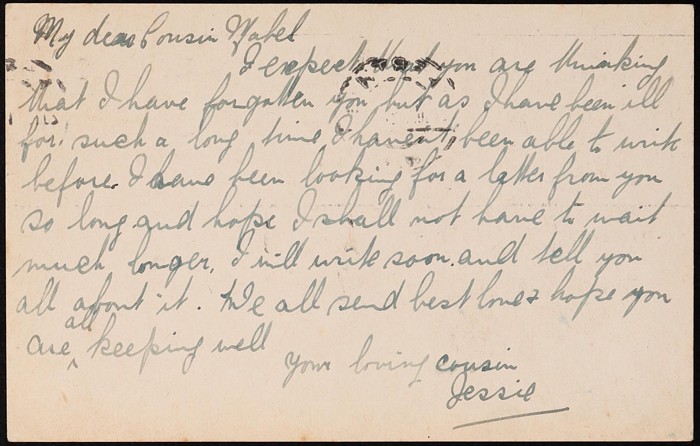 My dear Cousin Mabel
I expect that you are thinking
that I have forgotten you but as I have been ill
for such a long time I havent been able to write
before. I have been looking for a letter from you
so long and hope I shall not have to wait
much longer. I will write soon and tell you
all about it. We all send best love & hope you
are all keeping well
Your loving cousin
Jessie